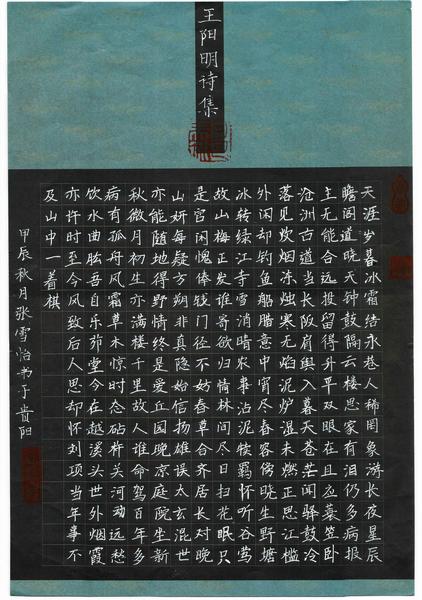 王阳明诗集
天涯岁暮冰霜结永巷人稀罔象游长夜星辰
瞻阁道晓天钟鼓隔云楼思家有泪仍多病报
主无能合远投留得升平双眼在且应蓑笠卧
沧洲古道当长阪肩舆入暮天苍茫闻驿鼓冷
落见炊烟冻烛寒无焰泥炉湿未燃正思江槛
外闲却钓鱼船腊意中宵尽春容傍晓生野塘
冰转绿江寺雪消晴农事沾泥犊羁怀听谷莺
故山梅正发谁寄欲归情林间尽日扫花眠只
是官闲愧俸钱门径不妨春草合斋居长对晚
山妍每疑方朔非真隐始信扬雄误太玄混世
亦能随地得野情终是爱丘园一凉庭院坐新
秋微月初生亦满楼千里故人谁命驾百年多
病有孤舟风霜草木惊时态砧杵关河动远愁
饮水曲肱吾自乐茆堂今在越溪头世外烟霞
亦许时至今风致后人思却怀刘项当年事不
及山中一着棋
甲辰秋月张雪怡书于贵阳